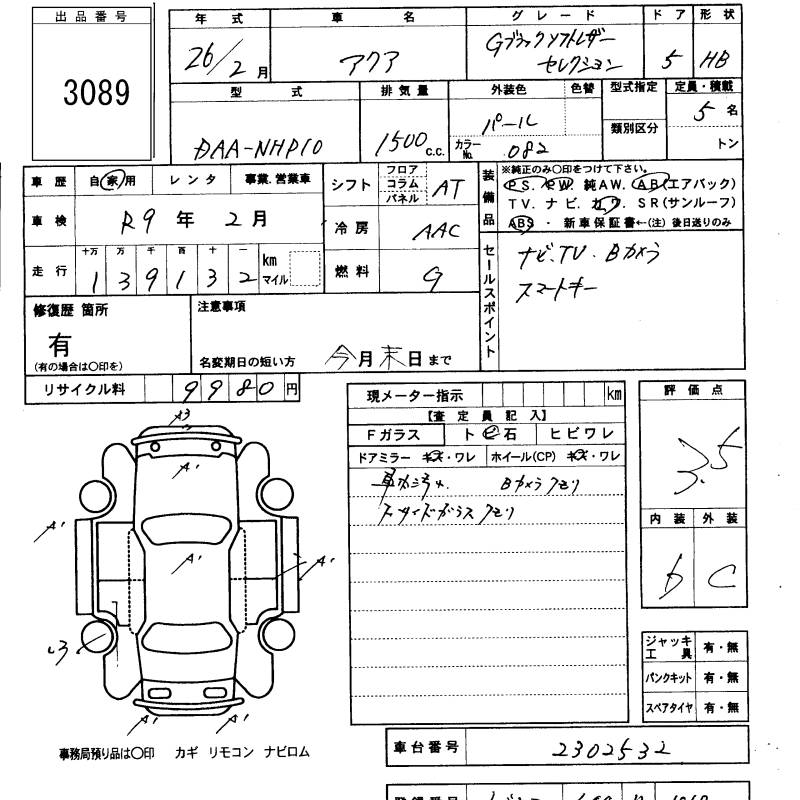 出品番号
3089
年式 車名 グレード ドア 形状
26/2月 アクア Gブラックソフトレザーセレクション 5 HB
型式 排気量 外装色 色替 型式指定 定員・積載
DAA-NHP10 1500 c.c. パール カラーNo. 082 類別区分 5名
トン
車歴 自家用 レンタ 事業.営業車
車検 R9年 2月
走行 十万 万 千 百 十 一 km マイル
139132
シフト フロア コラム パネル AT
冷房 AAC
燃料 G
装備品 ※純正のみ〇印をつけて下さい。
PS. PW. 純AW. AB(エアバック)
TV. ナビ. カワ. SR(サンルーフ)
ABS ・ 新車保証書←(注) 後日送りのみ
セールスポイント
ナビ.TV.Bカメラ
スマートキー
修復歴 箇所
有
(有の場合は〇印を)
注意事項
名変期日の短い方 今月末日まで
リサイクル料 9980円
現メーター指示 km
【査定員記入】
Fガラス ト ビ 石 ヒビワレ
ドアミラー キズ・ワレ ホイール(CP) キズ・ワレ
Bカメラアセリ
ガラスアセリ
評価点
3.5
内装 外装
D C
A3
A'
A'
A'
A'
A'
A'
ジャッキ工具 有・無
パンクキット 有・無
スペアタイヤ 有・無
事務局預り品は〇印 カギ リモコン ナビロム
車台番号 2302532